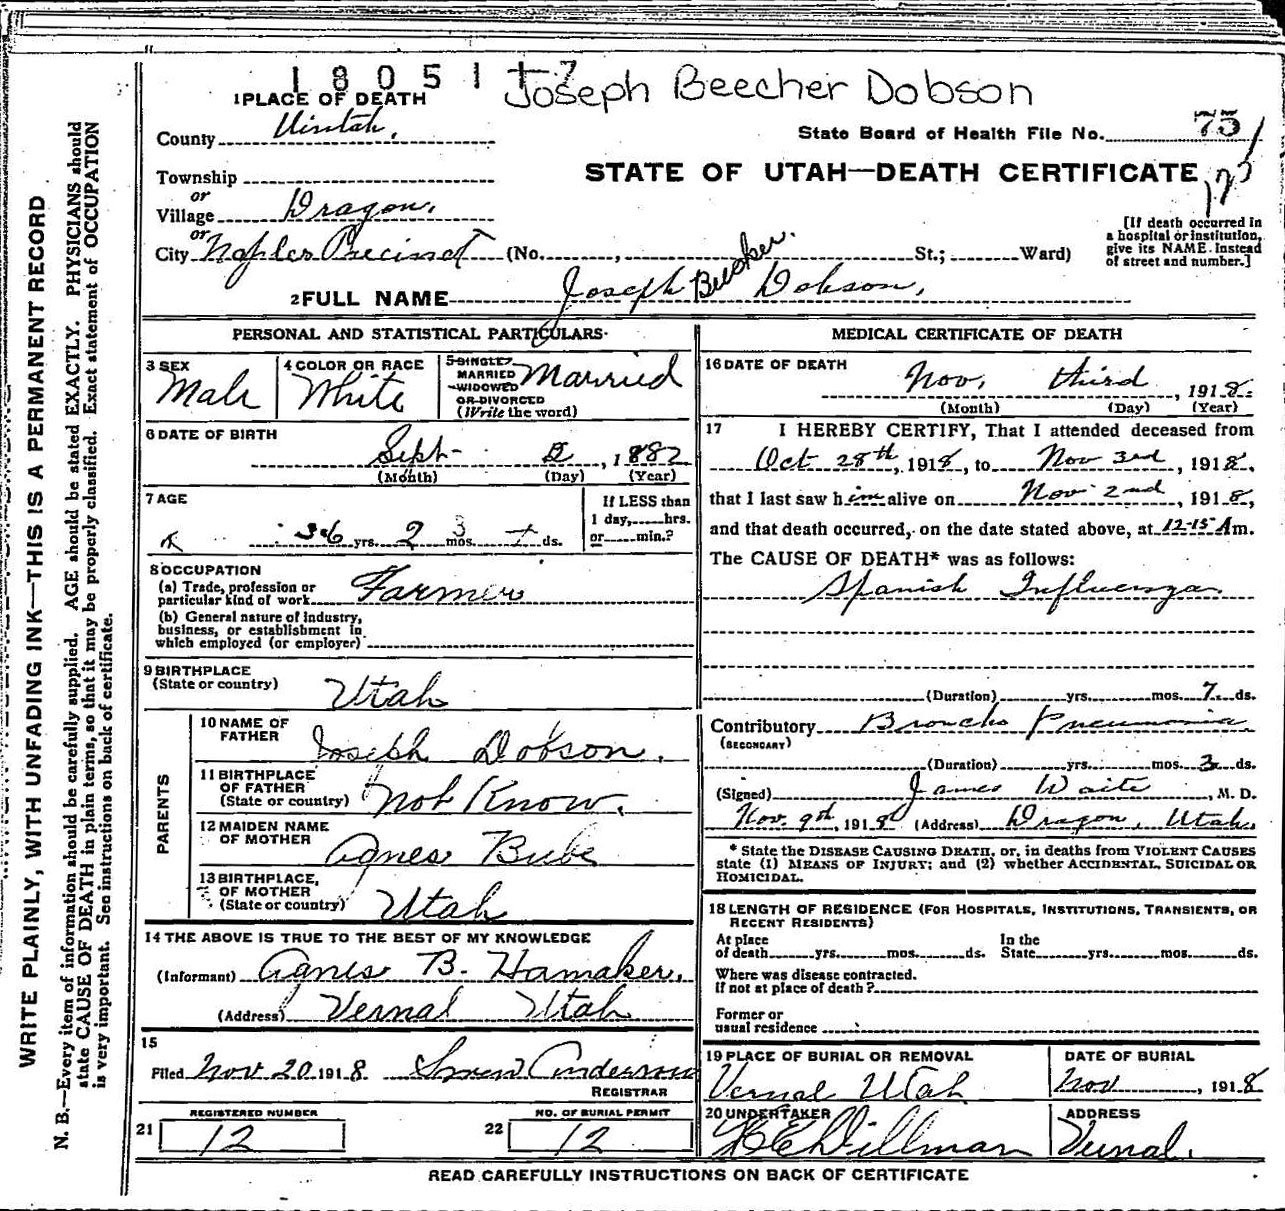 1 8 0 5 1 1 7
Joseph Beecher Dobson
1 PLACE OF DEATH
County Uintah,
State Board of Health File No. 75
STATE OF UTAH—DEATH CERTIFICATE
Township
or
Village Dragon,
or
City Naples Precinct (No. , St.; Ward)
[If death occurred in
a hospital or institution,
give its NAME instead
of street and number.]
2 FULL NAME Joseph Beecher Dobson,
PERSONAL AND STATISTICAL PARTICULARS
3 SEX
Male
4 COLOR OR RACE
White
5 SINGLE,
MARRIED
WIDOWED
OR DIVORCED
(Write the word)
Married
6 DATE OF BIRTH
Sept- 2, 1882
(Month) (Day) (Year)
7 AGE
36 yrs. 2 3 mos. ds.
If LESS than
1 day, hrs.
or min.?
8 OCCUPATION
(a) Trade, profession or
particular kind of work Farmer
(b) General nature of industry,
business, or establishment in
which employed (or employer)
9 BIRTHPLACE
(State or country) Utah
PARENTS
10 NAME OF
FATHER Joseph Dobson.
11 BIRTHPLACE
OF FATHER
(State or country) Not Know.
12 MAIDEN NAME
OF MOTHER Agnes
13 BIRTHPLACE,
OF MOTHER
(State or country) Utah
14 THE ABOVE IS TRUE TO THE BEST OF MY KNOWLEDGE
(Informant) Agnes B. Hamaker,
(Address) Vernal Utah
15
Filed Nov 20 1918. Anderson
REGISTRAR
REGISTERED NUMBER
21 12
NO. OF BURIAL PERMIT
22 12
MEDICAL CERTIFICATE OF DEATH
16 DATE OF DEATH
Nov, third, 1918.
(Month) (Day) (Year)
17 I HEREBY CERTIFY, That I attended deceased from
Oct 28th, 1918, to Nov 3rd, 1918,
that I last saw him alive on Nov 2nd, 1918,
and that death occurred, on the date stated above, at 12-15 Am.
The CAUSE OF DEATH* was as follows:
Spanish Influenza
(Duration) yrs. mos. 7 ds.
Contributory Broncho Pneumonia
(SECONDARY)
(Duration) yrs. mos. 3 ds.
(Signed) James Waite, M. D.
Nov. 9th, 1918 (Address) Dragon, Utah.
* State the DISEASE CAUSING DEATH, or, in deaths from VIOLENT CAUSES
state (1) MEANS OF INJURY; and (2) whether ACCIDENTAL, SUICIDAL OR
HOMICIDAL.
18 LENGTH OF RESIDENCE (FOR HOSPITALS, INSTITUTIONS, TRANSIENTS, OR
RECENT RESIDENTS)
At place
of death yrs. mos. ds.
In the
State yrs. mos. ds.
Where was disease contracted.
If not at place of death?
Former or
usual residence
19 PLACE OF BURIAL OR REMOVAL
Vernal Utah
DATE OF BURIAL
Nov , 1918
20 UNDERTAKER
Dillman
ADDRESS
Vernal.
READ CAREFULLY INSTRUCTIONS ON BACK OF CERTIFICATE
WRITE PLAINLY, WITH UNFADING INK—THIS IS A PERMANENT RECORD
N. B.—Every item of information should be carefully supplied. AGE should be stated EXACTLY. PHYSICIANS should
state CAUSE OF DEATH in plain terms, so that it may be properly classified. Exact statement of OCCUPATION
is very important. See instructions on back of certificate.